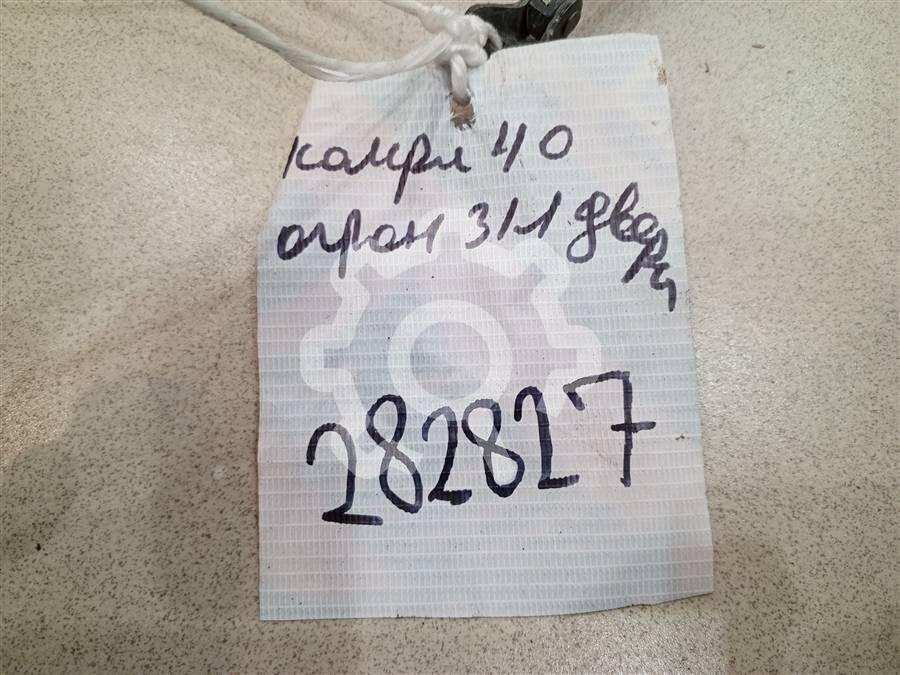 камри 40
огран з/л двери
282827